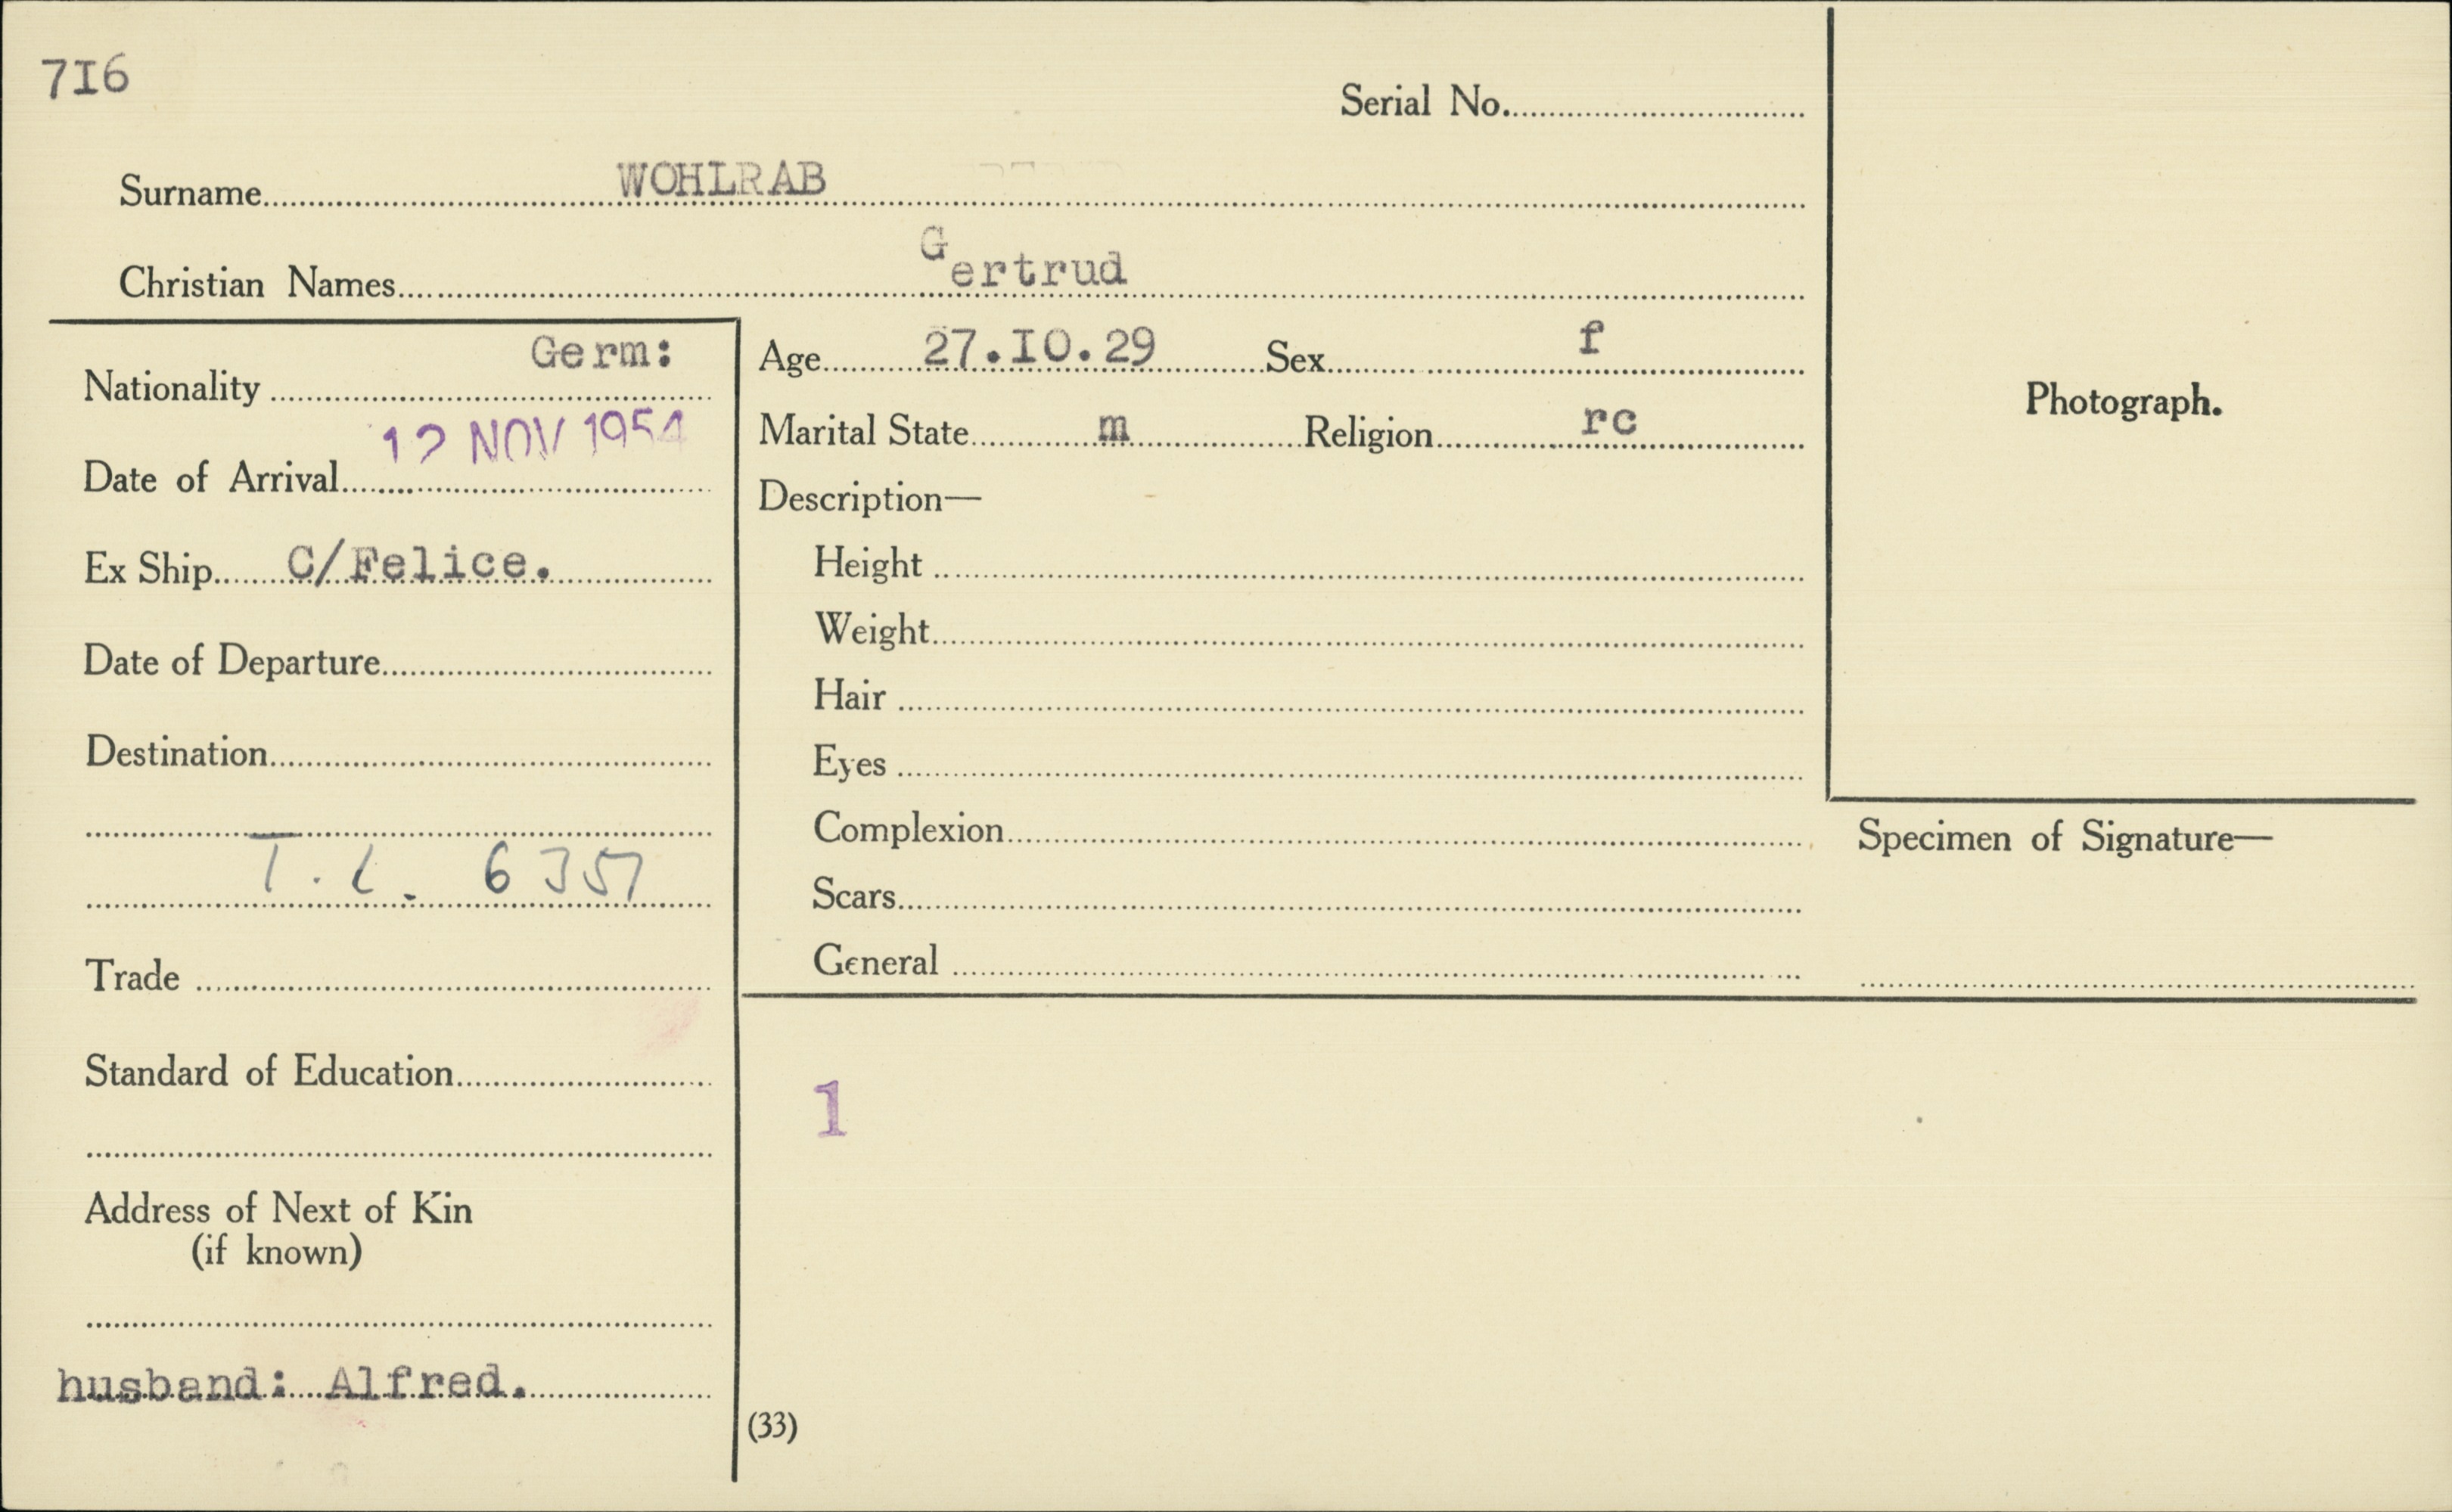 7I6
Serial No.
Surname WOHLRAB
Christian Names Gertrud
Nationality Germ:
Date of Arrival 12 NOV 1954
Ex Ship C/Felice.
Date of Departure
Destination
Trade
Standard of Education
Address of Next of Kin
(if known)
husband: Alfred.
Age 27.IO.29 Sex f
Marital State m Religion rc
Description—
Height
Weight
Hair
Eyes
Complexion
Scars
General
1
(33)
Photograph.
Specimen of Signature—